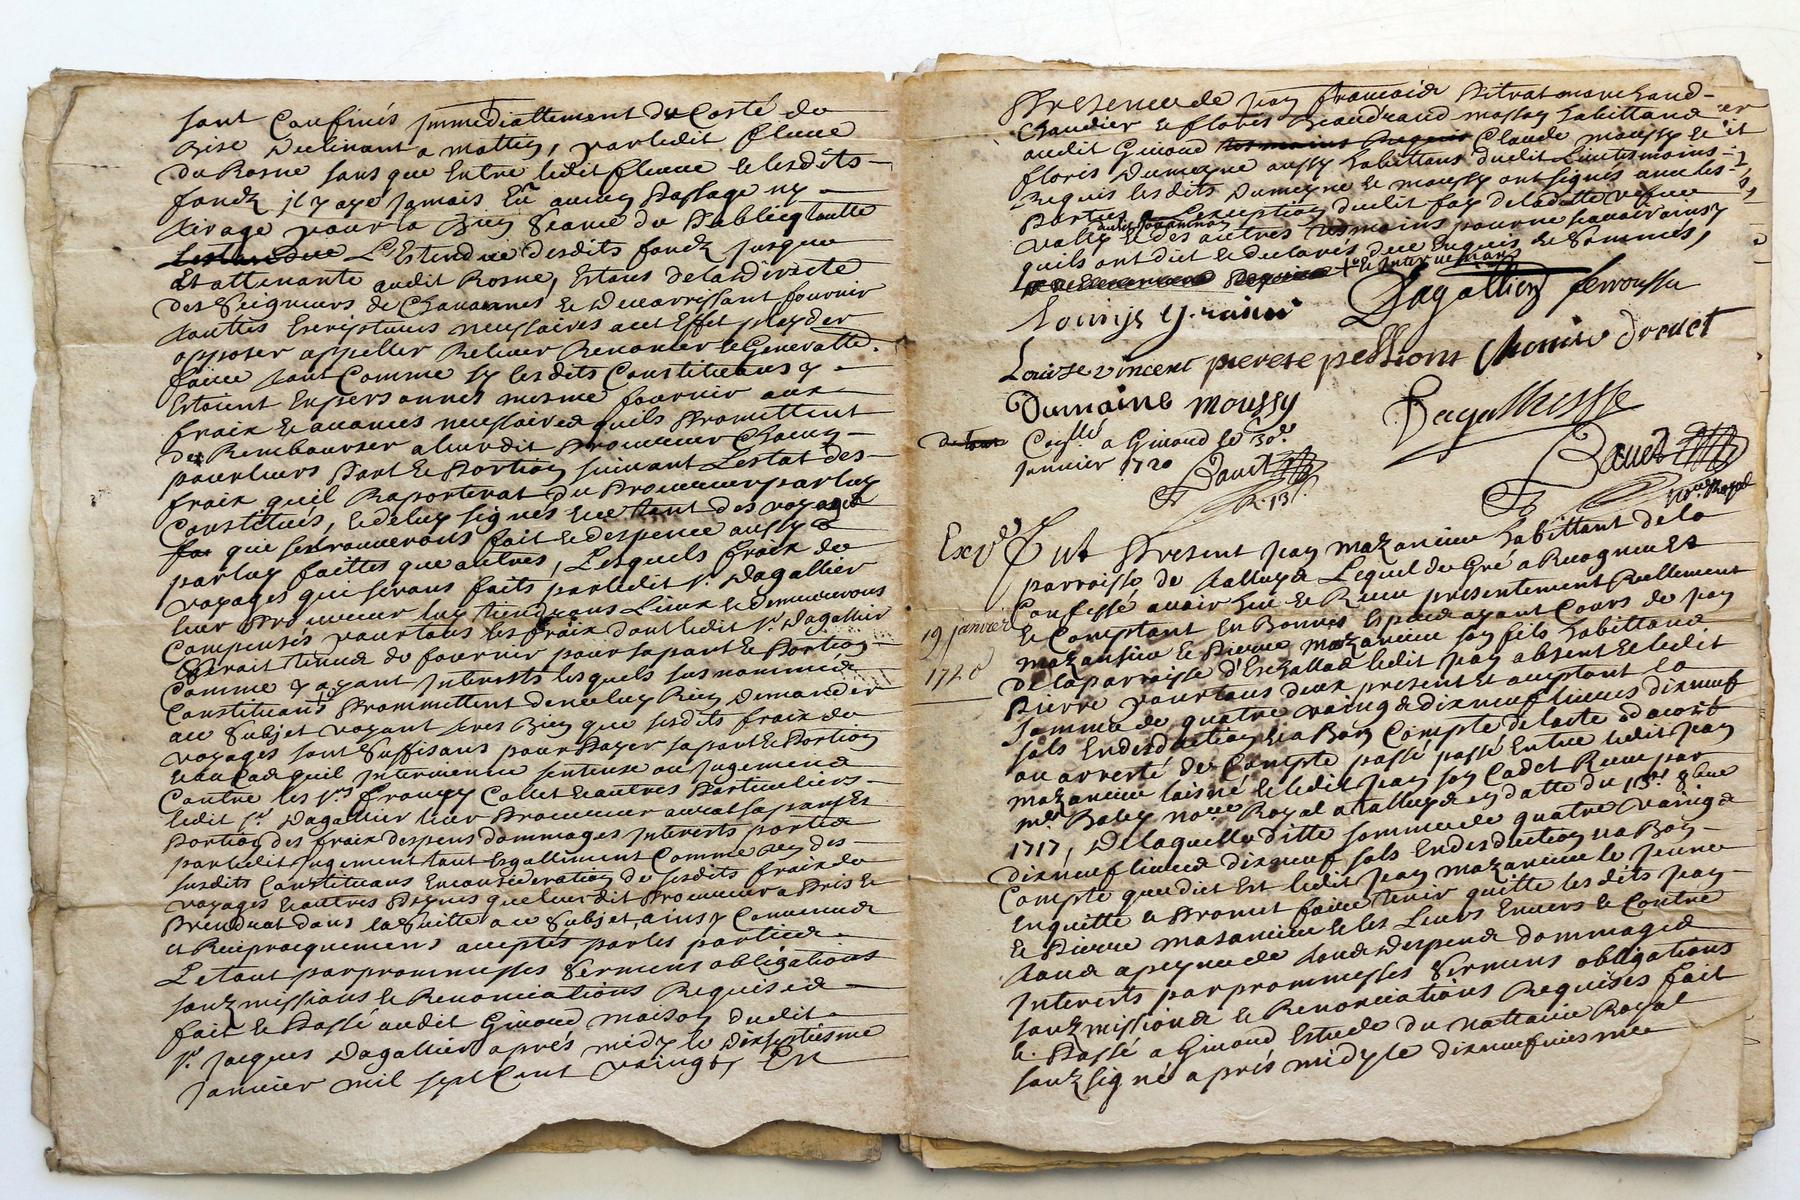 sont Confinés Jmmediattement du Costé de
Bise Declinant a mattin, par ledit fleuve
du Rosne sans que Entre ledit fleuve et lesdits
fondz il y aye Jamais Eu aucun Passage ny
tirage pour la Bien Seance du Publicq toutte
L'Estendue desdits fondz Jusque
Et attenante audit Rosne, Estans de la Directe
des Seigneurs de Chavannes et De fournir
touttes Escriptures necessaires a cet Effet playder
opposer appeller Relever Renoncer et Generalle
faire tout Comme sy lesdits Constituans y
Estoient En personnes mesme fournir aux
fraix et avances necessaires quils Promettent
de Rembourser a leur dit Procureur Chacun
pour leurs Part et Portion suivant L'estat des
fraix quil Raporterat du Procureur par luy
Constitués, et de luy signés que tant des voyages
que se trouverons fait et despence aussy
par luy faittes que autres, Lesquels fraix de
voyages que serons faits par ledit Sr Dagallier
leur Procureur luy tiendrons Lieux et demeurerons
Compensés pour tous les fraix dont ledit Sr Dagallier
Serait tenud de fournir pour sa part et Portion
Comme y ayant Jnterests lesquels sus nommés
Constituans Promettent de ne luy Rien Demander
au Subjet voyant tres Bien que sesdits fraix de
voyages sont Suffisans pour Payer sa part et Portion
et au Cas quil Jntervienne sentense ou Jugement
Contre les Srs françois Collet et autres Particuliers
ledit Sr Dagallier leur Procureur aurat sa part Et
Portion des fraix despens dommages Jnterests portés
par ledit Jugement tout Esgallement Comme un des
susdits Constituans En consideration de sesdits fraix de
voyages et autres Peynes que leur dit Procureur a Pris et
Prendrat dans la Suitte a ce Subjet, ainsy Convenus
et Reciproquement acceptés par les parties
Le tout par prommesses Sermens obligations
soubzmissions et Renonciations Requises
fait et Passé audit Giroud maison dudit
Sr Jacques Dagallier aprés midy le Dixseptiesme
Janvier mil sept Cent vaingts, En
Presence de Jean françois marchand
Chandier et floris Beaudrand masson habittans
audit Giroud Claude moussy et
floris Dumayne aussy habittans dudit Lieu tesmoins
Requis lesdits Dumayne et moussy ont signés avec les
Parties a L'exception dudit
et des autres tesmoins pour ne scavoir ainsy
quils ont dit et declarés de ce Enquis et Sommés,
Dagallier ferrousse
Louise vincent pierere pessions drevet
Dumaine moussy
Dagallier
Conllé a Giroud le 30e
Janvier 1720
Exp.é
Fut Present Jean mazancieu habittant de la
parroisse de talluya Lequel de Gré a Recogneu Et
Confessé avoir heu et Receu presentement Reellement
et Comptant En Bonnes Especes ayant Cours de Jean
19 janvier
1720
mazancieu et Pierre mazancieu son fils habittans
de la parroisse d'Escallas ledit Jean absent Et ledit
Pierre pour tous deux present Et acceptant la
somme de quatre vaingts dixneuf livres dixneuf
sols En desduction Et a Bon Compte de l'acte d'acord
ou arresté de Compte passé passé Entre ledit Jean
mazancieu laisné et ledit Jean son Cadet Receu par
mre Baley nore Royal a talluya en datte du 13e 8bre
1717, De laquelle ditte somme de quatre vaingts
dixneuf livres dixneuf sols En desduction et a Bon
Compte que dict Est ledit Jean mazancieu le Jeune
En quitte et Promet faire tenir quitte les dits Jean
et Pierre mazancieu et les Leurs Envers et Contre
tous a peyne de tous Despens dommages
Jnterests par prommesses Sermens obligations
soubzmissions et Renonciations Requises fait
et Passé a Giroud Estude du nottaire Royal
soubzsigné aprés midy le dixneufviesme